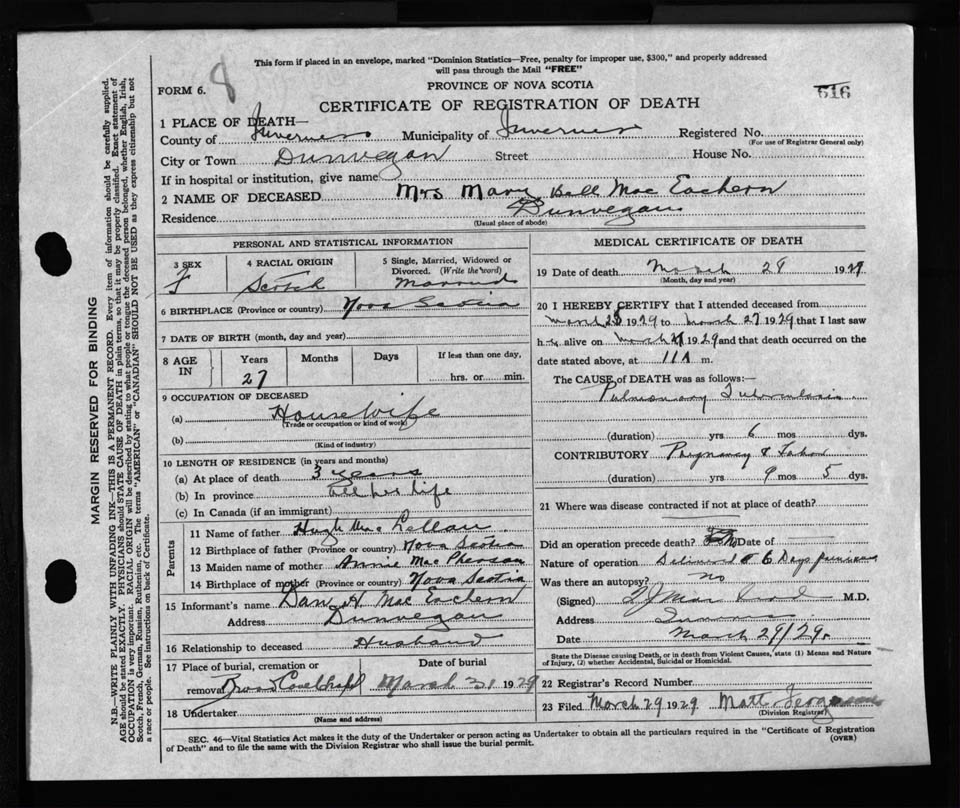 This form if placed in an envelope, marked "Dominion Statistics—Free, penalty for improper use, $300," and properly addressed
will pass through the Mail "FREE"
8
FORM 6.
PROVINCE OF NOVA SCOTIA
516
CERTIFICATE OF REGISTRATION OF DEATH
1 PLACE OF DEATH—
County of Inverness Municipality of Inverness Registered No.
(For use of Registrar General only)
City or Town Dunvegan Street House No.
If in hospital or institution, give name
2 NAME OF DECEASED Mrs Mary Bell Mac Eachern
Residence Dunvegan
(Usual place of abode)
PERSONAL AND STATISTICAL INFORMATION
3 SEX F
4 RACIAL ORIGIN Scotch
5 Single, Married, Widowed or Divorced. (Write the word) Married
6 BIRTHPLACE (Province or country) Nova Scotia
7 DATE OF BIRTH (month, day and year)
8 AGE IN Years Months Days If less than one day,
27 hrs. or min.
9 OCCUPATION OF DECEASED
(a) Housewife
(Trade or occupation or kind of work)
(b)
(Kind of industry)
10 LENGTH OF RESIDENCE (in years and months)
(a) At place of death 3 years
(b) In province all her life
(c) In Canada (if an immigrant)
Parents
11 Name of father Hugh Mac Lellan
12 Birthplace of father (Province or country) Nova Scotia
13 Maiden name of mother Annie Mac Pherson
14 Birthplace of mother (Province or country) Nova Scotia
15 Informant's name Dan H Mac Eachern
Address Dunvegan
16 Relationship to deceased Husband
17 Place of burial, cremation or Date of burial
removal March 31 1929
18 Undertaker
(Name and address)
MEDICAL CERTIFICATE OF DEATH
19 Date of death March 29 1929
(Month, day and year)
20 I HEREBY CERTIFY that I attended deceased from
March 1929 to March 27 1929 that I last saw
h alive on March 27 1929 and that death occurred on the
date stated above, at 11 A m.
The CAUSE of DEATH was as follows:—
Pulmonary Tuberculosis
(duration) yrs 6 mos dys.
CONTRIBUTORY Pregnancy & Labor
(duration) yrs 9 mos 5 dys.
21 Where was disease contracted if not at place of death?
Did an operation precede death? Date of
Nature of operation Delivered 6 Days previous
Was there an autopsy? no
(Signed) M.D.
Address
Date March 29/29.
State the Disease causing Death, or in death from Violent Causes, state (1) Means and Nature
of Injury, (2) whether Accidental, Suicidal or Homicidal.
22 Registrar's Record Number
23 Filed March 29 1929 Matt
(Division Registrar)
SEC. 46—Vital Statistics Act makes it the duty of the Undertaker or person acting as Undertaker to obtain all the particulars required in the "Certificate of Registration
of Death" and to file the same with the Division Registrar who shall issue the burial permit.
(OVER)
MARGIN RESERVED FOR BINDING
N.B.—WRITE PLAINLY WITH UNFADING INK—THIS IS A PERMANENT RECORD. Every item of information should be carefully supplied.
AGE should be stated EXACTLY. PHYSICIANS should STATE CAUSE OF DEATH in plain terms, so that it may be properly classified. Exact statement of
OCCUPATION is very important. RACIAL ORIGIN will be described by stating to what people or tongue the deceased person belonged, whether English, Irish,
Scotch, French, German, Russian, Ruthenian, etc. The terms "AMERICAN" or "CANADIAN" SHOULD NOT BE USED as they express citizenship but not
a race or people. See instructions on back of Certificate.